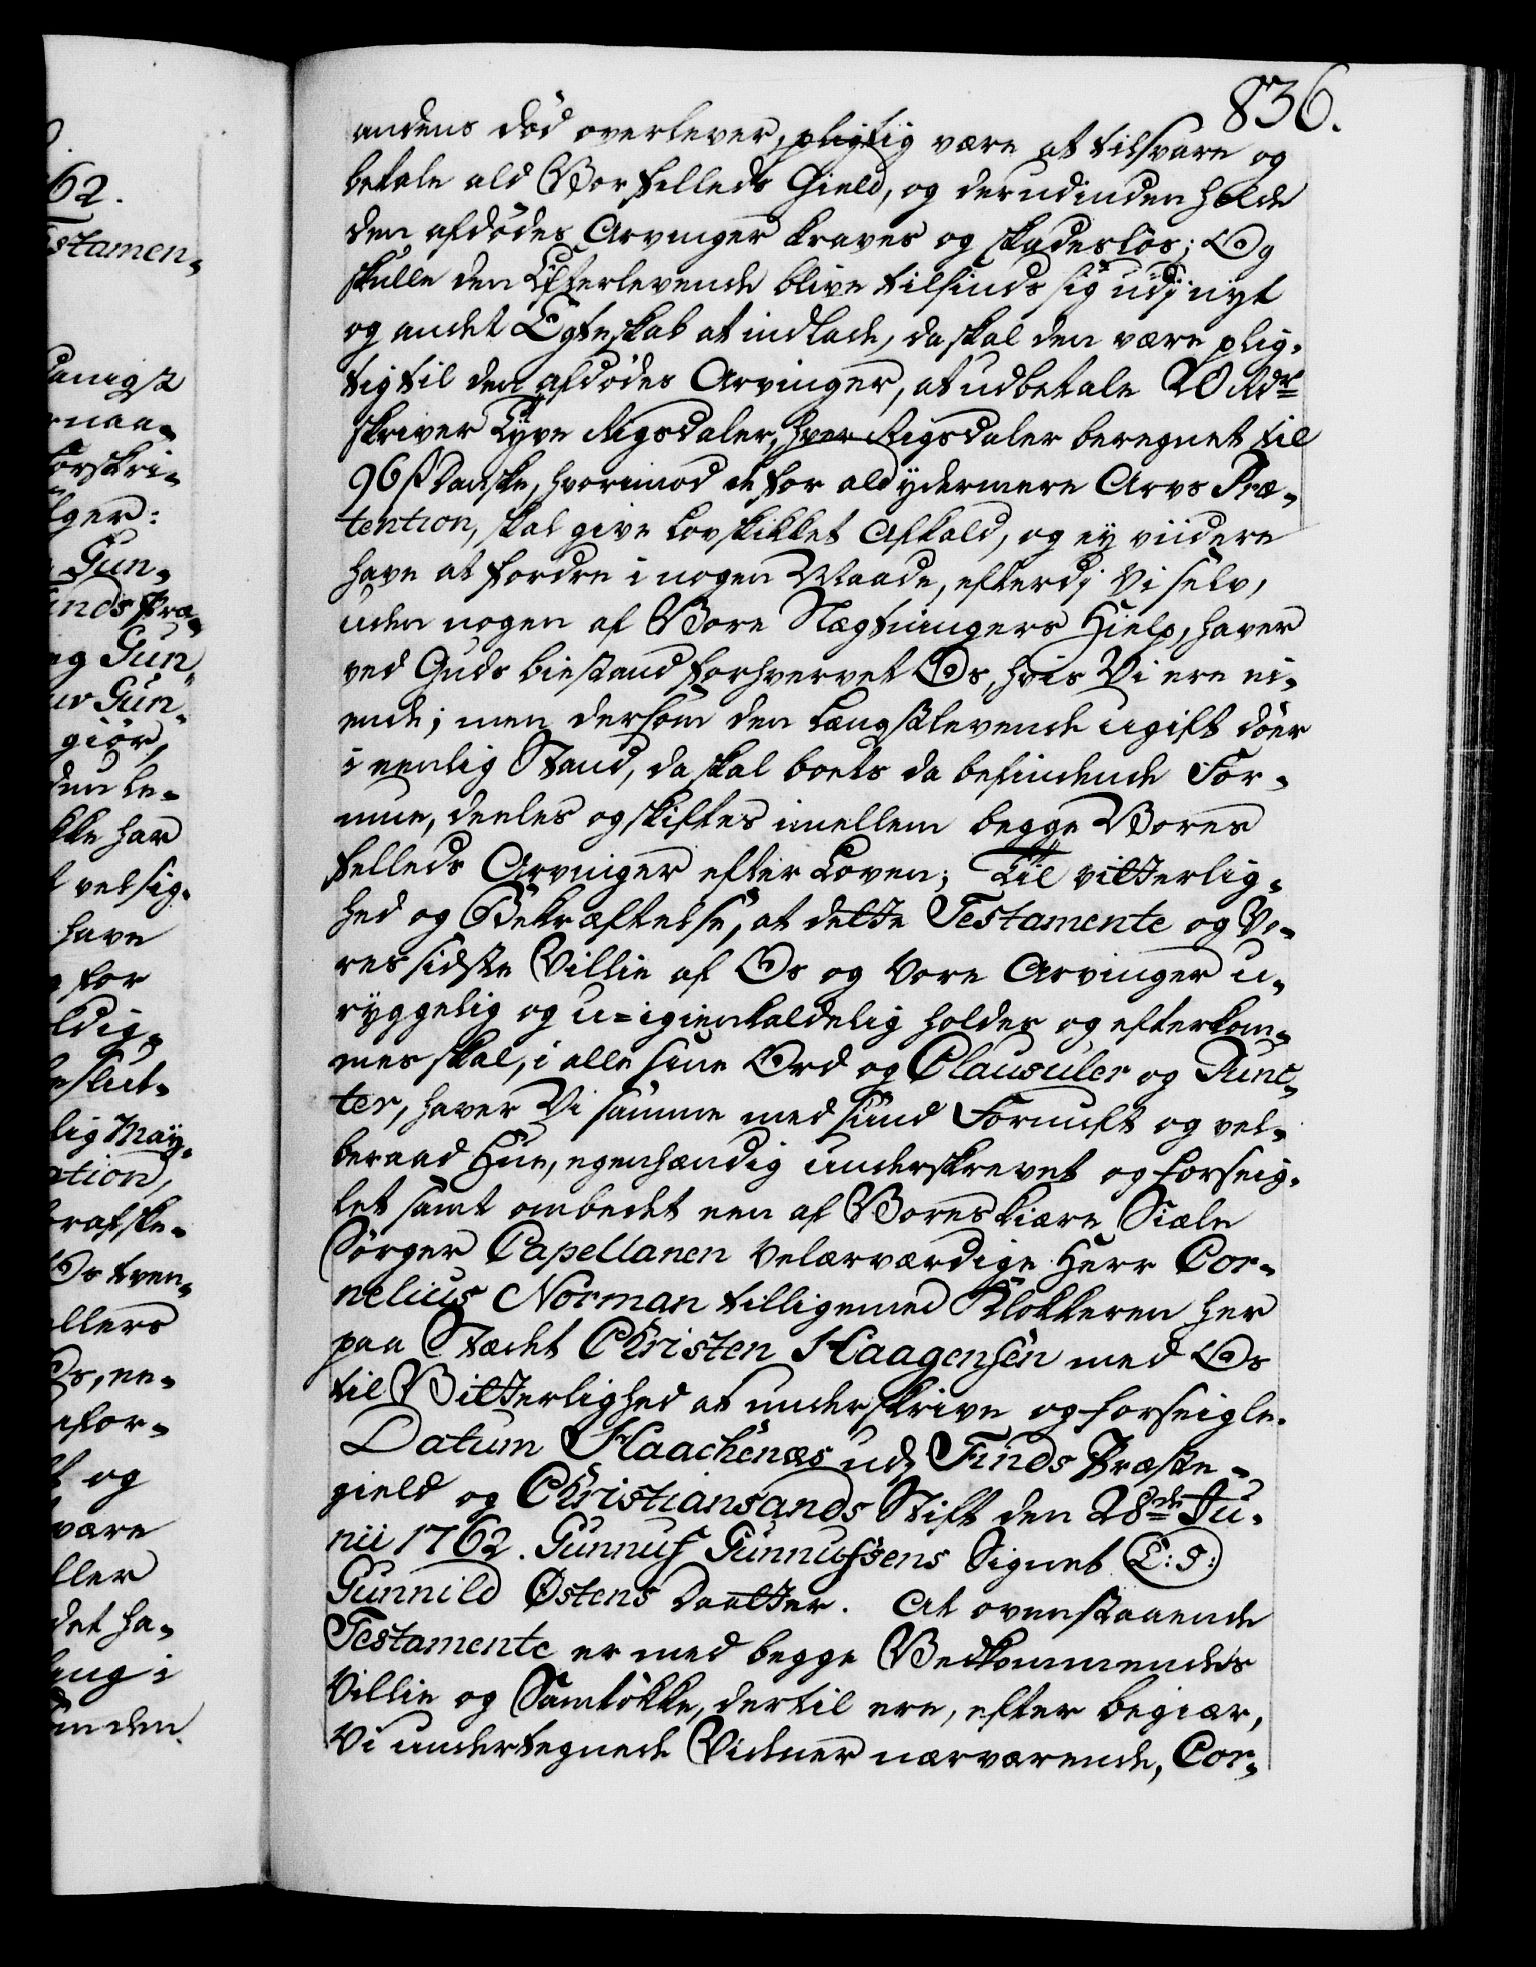 836.
andens död overlever, pligtig være at tilsvare og
betale ald Vor fælleds Gield, og derudinden holde
den afdödes Arvinger kravs og skadeslös; Og
skulle den Efterlevende blive tilsinds sig udj nyt
og andet Egteskab at indlade, da skal den være plig-
tig til den afdödes Arvinger, at udbetale 20 Rdr
skriver Tyve Rigsdaler, hver Rigsdaler beregnet til
96 ß Danske, hvorimod de for ald ydermere Arvs Præ-
tention, skal give Lovskikket Afkald, og ey viidere
have at fordre i nogen Maade, efterdj Vi selv,
uden nogen af Vore Slægtningers Hielp, haver
ved Guds biestand forhvervet Os, hvis Vi ere ei-
ende; men dersom den Længstlevende ugift döer
i eenlig Stand, da skal boets da befindende For-
mue, deeles og skiftes imellem begge Vores
felleds Arvinger efter Loven; Til vitterlig-
hed og Bekræftelse, at dette Testamente og Vo-
res sidste Villie af Os og Vore Arvinger u-
ryggelig og u-igienkaldelig holdes og efterkom-
mes skal, i alle sine Ord og Clausuler og Punc-
ter, haver Vi samme med sund Fornuft og vel-
beraad Hue, egenhændig underskrevet og forseig-
let samt ombedet een af Vores kiære Siæle
Sörger Capellanen Velærværdige Herr Cor-
nelius Norman tilligemed Klokkeren her
paa Stædet Christen Haagensen med Os
til Vitterlighed at underskrive og forseigle.
Datum Haachenæs udj Finds Præste-
gield og Christiansands Stift den 28de Ju-
nii 1762. Gunnuf Gunnufsens Signet (L: S:)
Gunnild Østens Daatter. At ovenstaaende
Testamente er med begge Vedkommendes
Villie og Samtökke, dertil ere, efter begiær,
Vi undertegnede Vidner nærværende, Cor-
62.
stamen-
anigst
naa-
forskri-
lger:
Gun-
inds Præ-
g Gun-
uv Gun-
giör,
den le-
kke har
t velsig-
have
for
ldig-
eslut-
lig May-
ation,
rafske-
Os tven-
ellers
Os, ee-
for-
t og
være
ller
det ha-
eng i
inden.